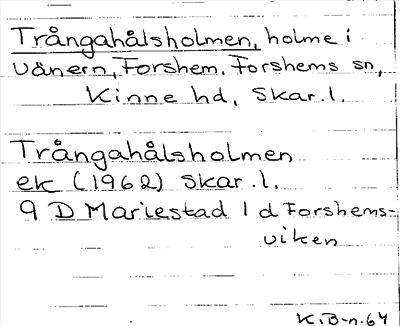 Trångahålsholmen, holme i
Vänern, Forshem, Forshems sn,
Kinne hd, Skar. l.
Trångahålsholmen
ek (1962) Skar. l.
9 D Mariestad 1 d Forshems-
viken
K.B-n. 64